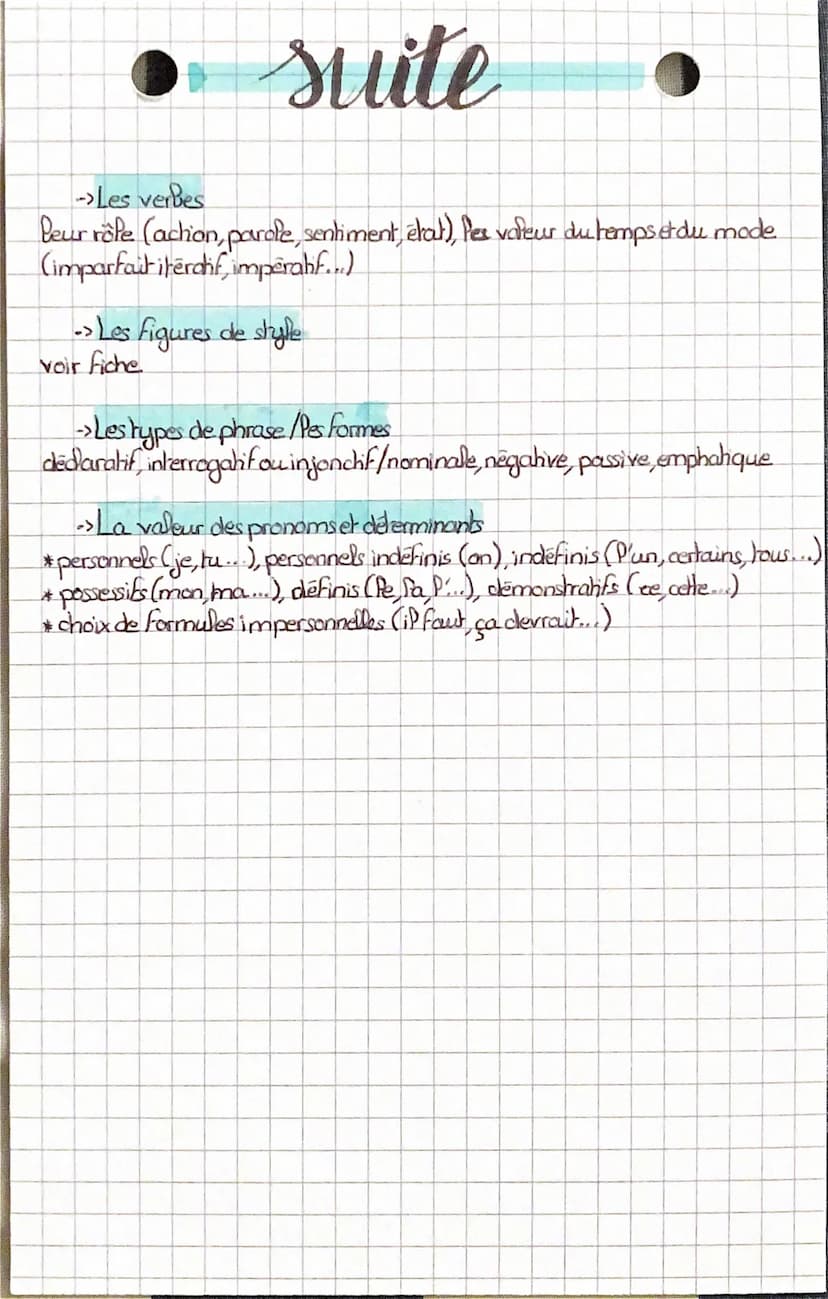 suite
->Les verbes
leur rôle (action, parole, sentiment, état), les valeur du temps et du mode
(imparfait itératif, impératif...)
->Les figures de style
voir fiche
->Les types de phrase/les formes
déclaratif, interrogatif ou injonctif/nominale, négative, passive, emphatique
->La valeur des pronoms et déterminants
*personnels (je, tu...), personnels indéfinis (on), indéfinis (l'un, certains, tous...)
* possessifs (mon, ma...), définis (le, la, l'...), démonstratifs (ce, cette...)
* choix de formules impersonnelles (il faut, ça devrait...)